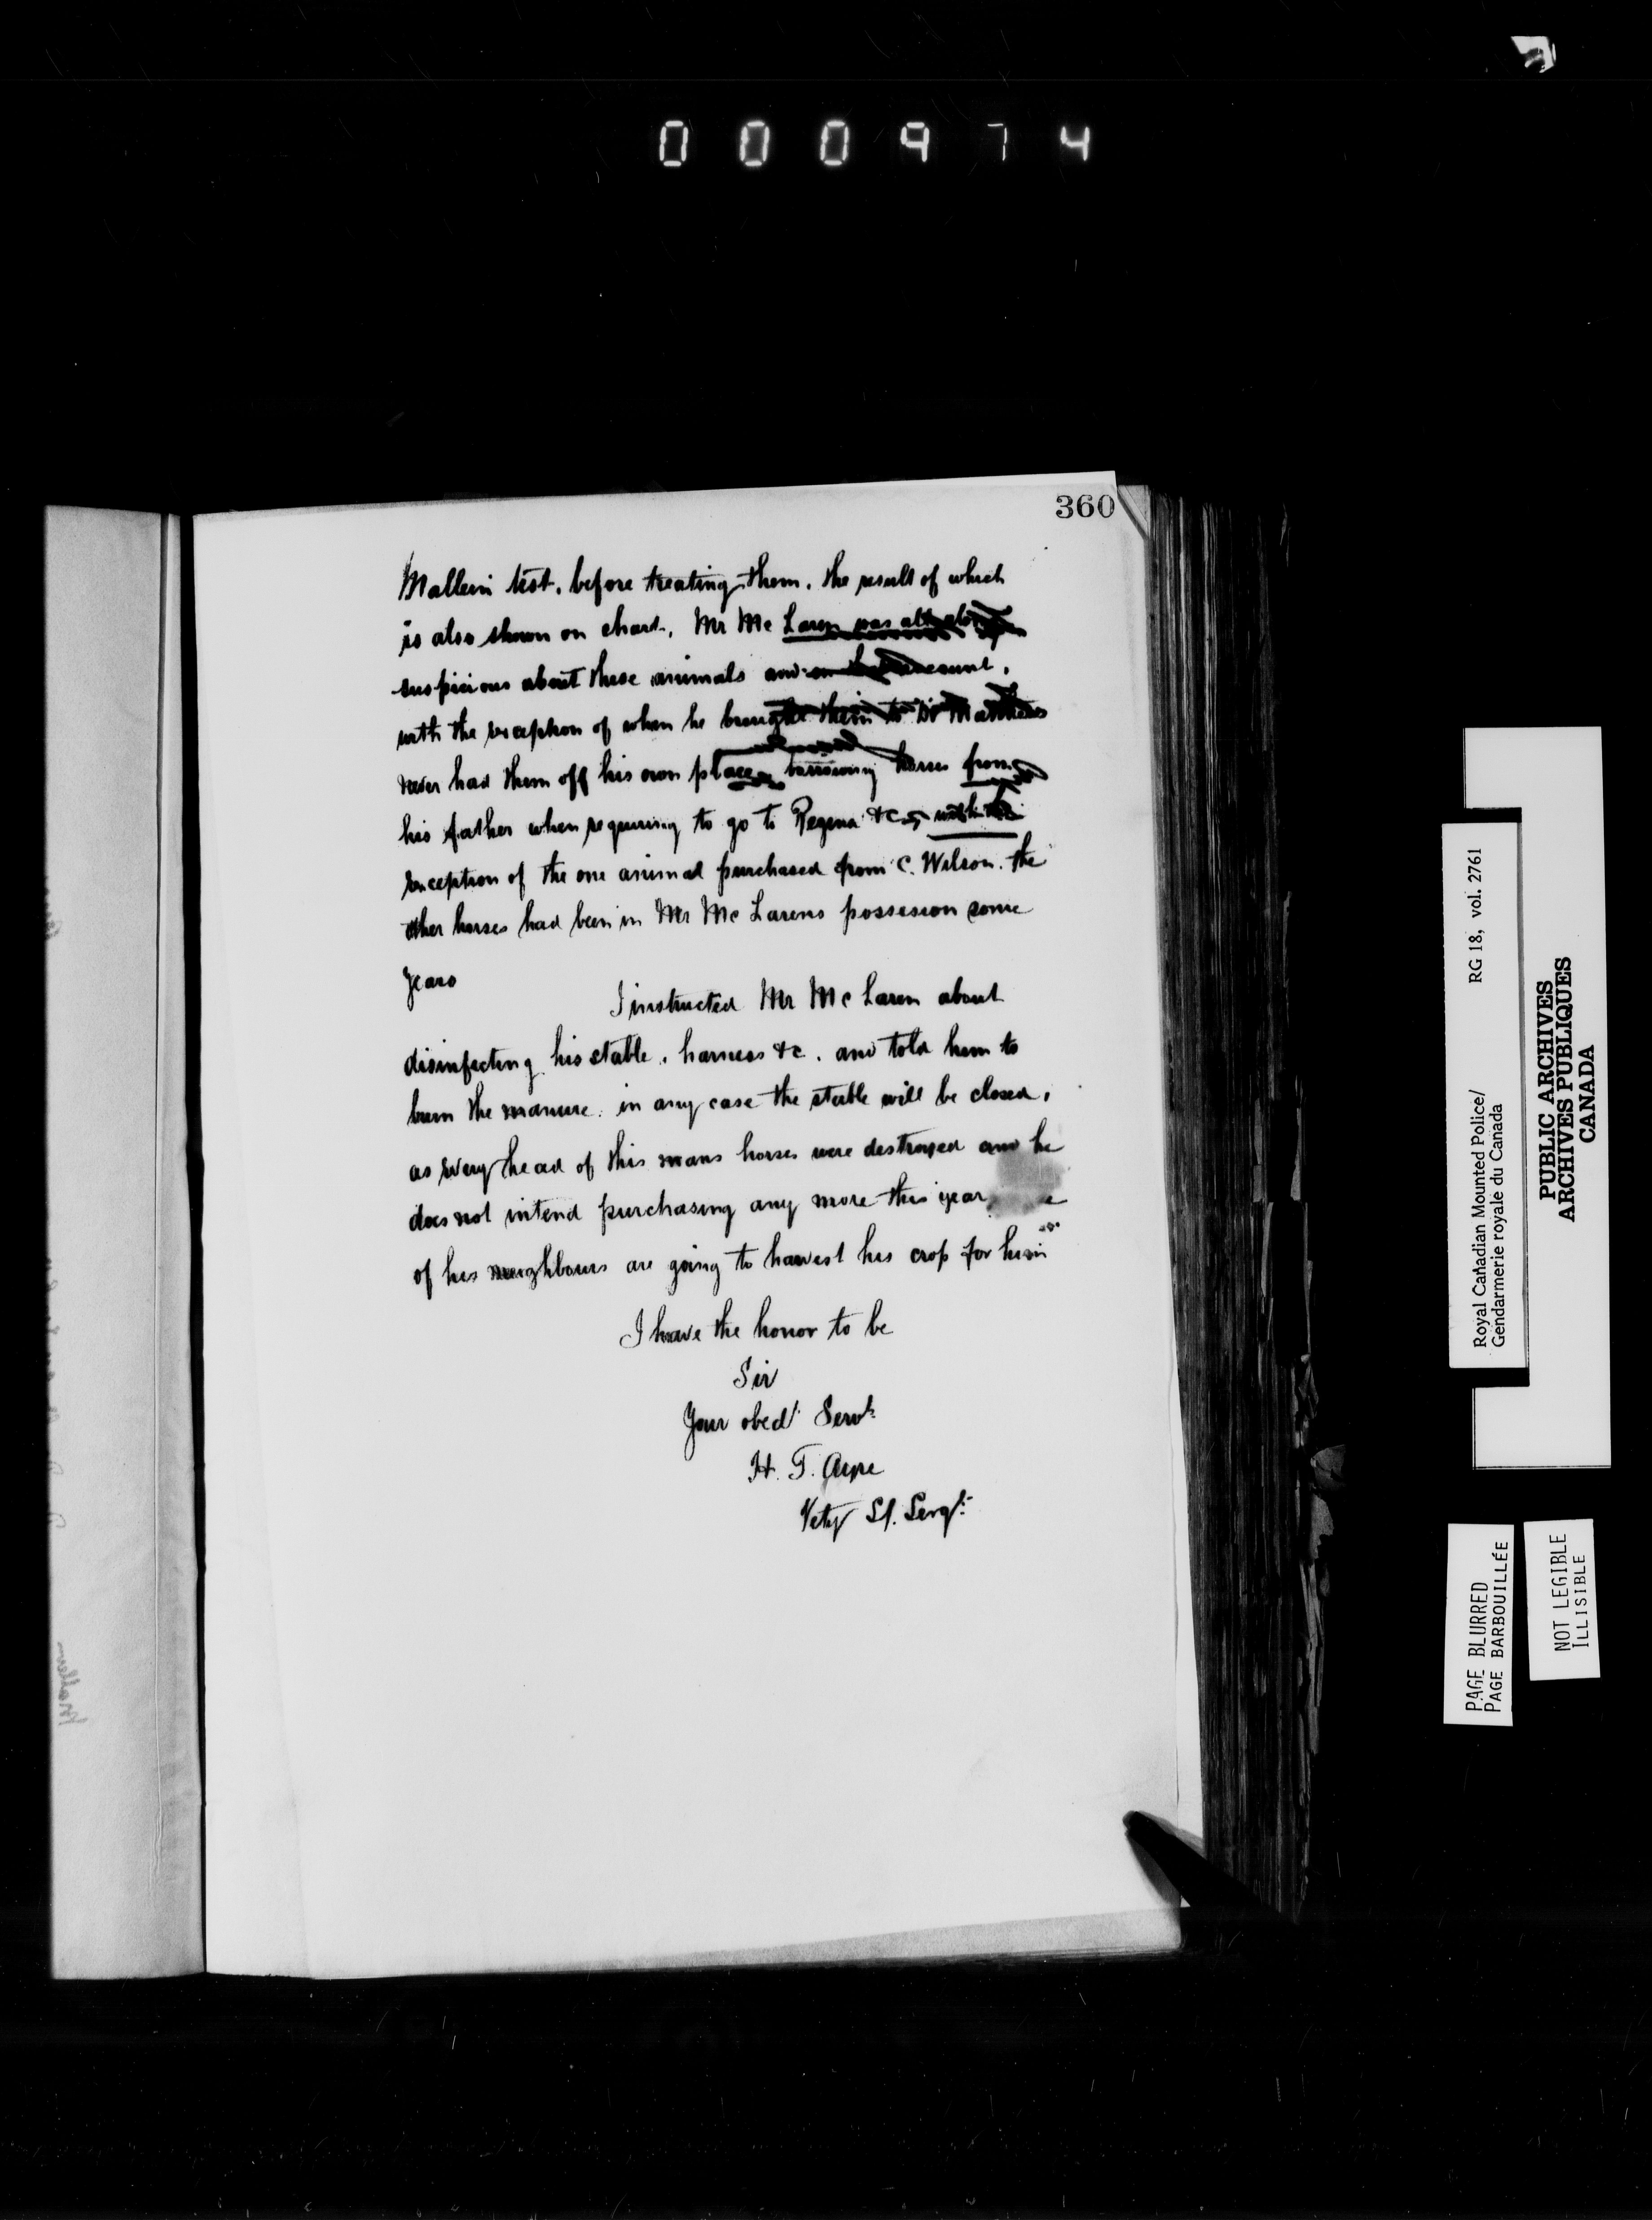 000974
360
Mallein test. before treating them. the result of which
is also shown on chart. Mr Mc Laren was all along
suspicious about these animals and on that account,
with the exception of when he brought them to Dr Mathews
never had them off his own place, borrowing horses from
his father when requiring to go to Regina &c, with the
exception of the one animal purchased from C. Wilson. the
other horses had been in Mr Mc Larens possession some
years
I instructed Mr Mc Laren about
disinfecting his stable, harness &c. and told him to
burn the manure. in any case the stable will be closed,
as every head of this mans horses were destroyed and he
does not intend purchasing any more this year
of his neighbours are going to harvest his crop for him"
I have the honor to be
Sir
Your obedt Servt
H. T. Ayre
Vety St. Sergt
Mallein
Royal Canadian Mounted Police/ RG 18, vol. 2761
Gendarmerie royale du Canada
PUBLIC ARCHIVES
ARCHIVES PUBLIQUES
CANADA
PAGE BLURRED
PAGE BARBOUILLÉE
NOT LEGIBLE
ILLISIBLE